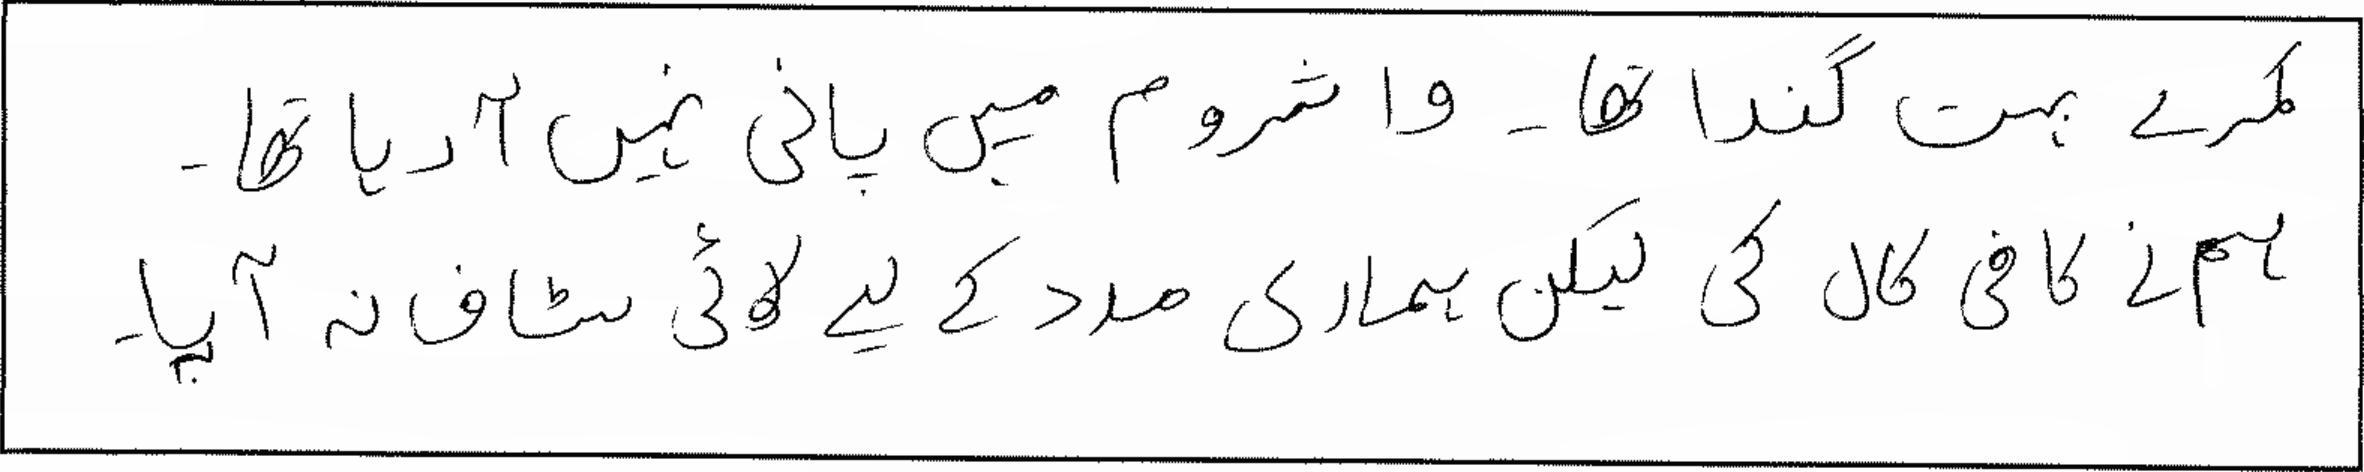 کمرے بہت گندا تھا۔ واشروم میں پانی نہیں آ رہا تھا۔
ہم نے کافی کال کی لیکن ہماری مدد کے لیے کوئی سٹاف نہ آیا۔